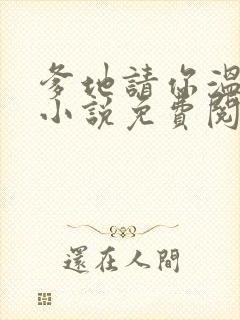 爹地請你溫
小說免費閱
還在人間